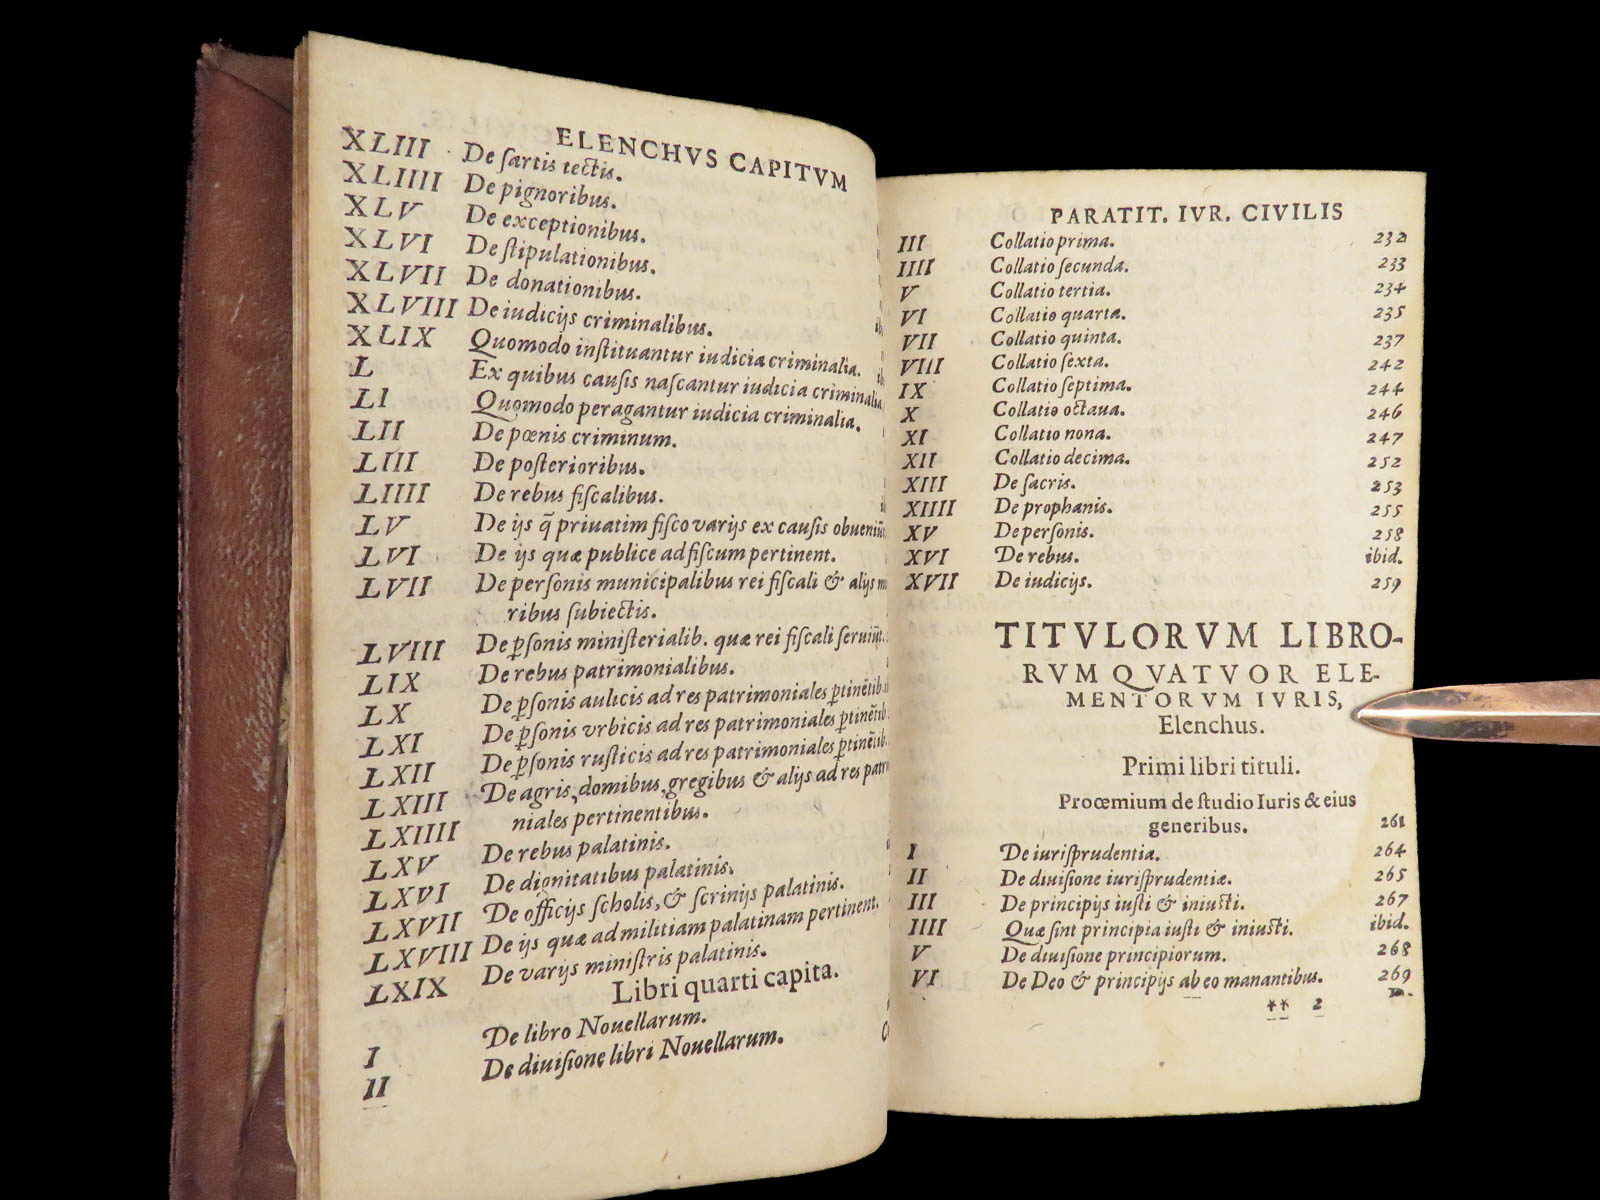 ELENCHVS CAPITVM
XLIII De ſartis tectis.
XLIIII De pignoribus.
XLV De exceptionibus.
XLVI De ſtipulationibus.
XLVII De donationibus.
XLVIII De iudicijs criminalibus.
XLIX Quomodo inſtituantur iudicia criminalia.
L Ex quibus cauſis naſcantur iudicia criminalia
LI Quomodo peragantur iudicia criminalia.
LII De pœnis criminum.
LIII De poſterioribus.
LIIII De rebus fiſcalibus.
LV De ijs q̃ priuatim fiſco varijs ex cauſis obueniũt
LVI De ijs quæ publice ad fiſcum pertinent.
LVII De perſonis municipalibus rei fiſcali & alijs
ribus ſubiectis.
LVIII De ꝑſonis miniſterialib. quæ rei fiſcali ſeruiũt.
LIX De rebus patrimonialibus.
LX De ꝑſonis aulicis ad res patrimoniales ꝑtinẽtib.
LXI De ꝑſonis vrbicis ad res patrimoniales ꝑtinẽtib.
LXII De ꝑſonis ruſticis ad res patrimoniales ꝑtinẽtib.
LXIII De agris, domibus, gregibus & alijs ad res patri
niales pertinentibus.
LXIIII De rebus palatinis.
LXV De dignitatibus palatinis.
LXVI De officijs ſcholis, & ſcrinijs palatinis.
LXVII De ijs quæ ad militiam palatinam pertinent.
LXVIII De varijs miniſtris palatinis.
LXIX
Libri quarti capita.
I De libro Nouellarum.
II De diuiſione libri Nouellarum.
PARATIT. IVR. CIVILIS
III Collatio prima. 232
IIII Collatio ſecunda. 233
V Collatio tertia. 234
VI Collatio quarta. 235
VII Collatio quinta. 237
VIII Collatio ſexta. 242
IX Collatio ſeptima. 244
X Collatio octaua. 246
XI Collatio nona. 247
XII Collatio decima. 252
XIII De ſacris. 253
XIIII De prophanis. 255
XV De perſonis. 258
XVI De rebus. ibid.
XVII De iudicijs. 259
TITVLORVM LIBRO-
RVM QVATVOR ELE-
MENTORVM IVRIS,
Elenchus.
Primi libri tituli.
Proœmium de ſtudio Iuris & eius
generibus. 261
I De iuriſprudentia. 264
II De diuiſione iuriſprudentiæ. 265
III De principijs iuſti & iniuſti. 267
IIII Quæ ſint principia iuſti & iniuſti. ibid.
V De diuiſione principiorum. 268
VI De Deo & principijs ab eo manantibus. 269
** 2 D.